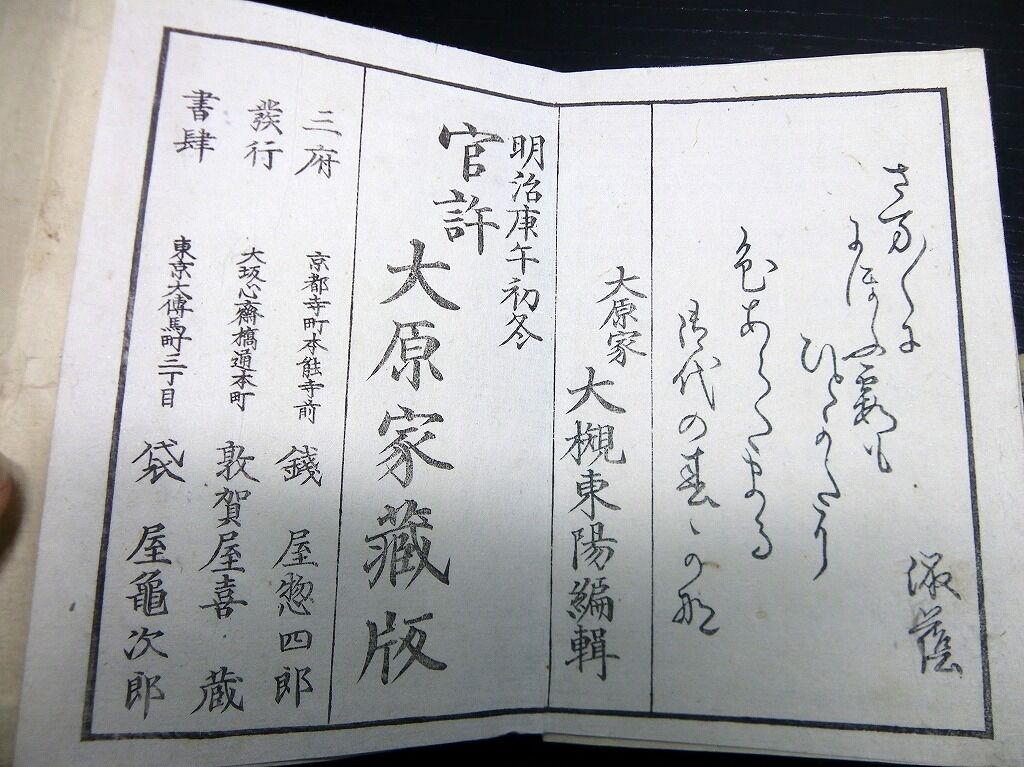 さま〳〵に
よほふ霞も
ひとかたり
色あらたまる
御代の春かな
大原家 大槻東陽編輯
明治庚午初冬
官許 大原家藏版
三府 京都寺町本能寺前 錢屋惣四郎
發行 大坂心齋橋通本町 敦賀屋喜藏
書肆 東京大傳馬町三丁目 袋屋亀次郎